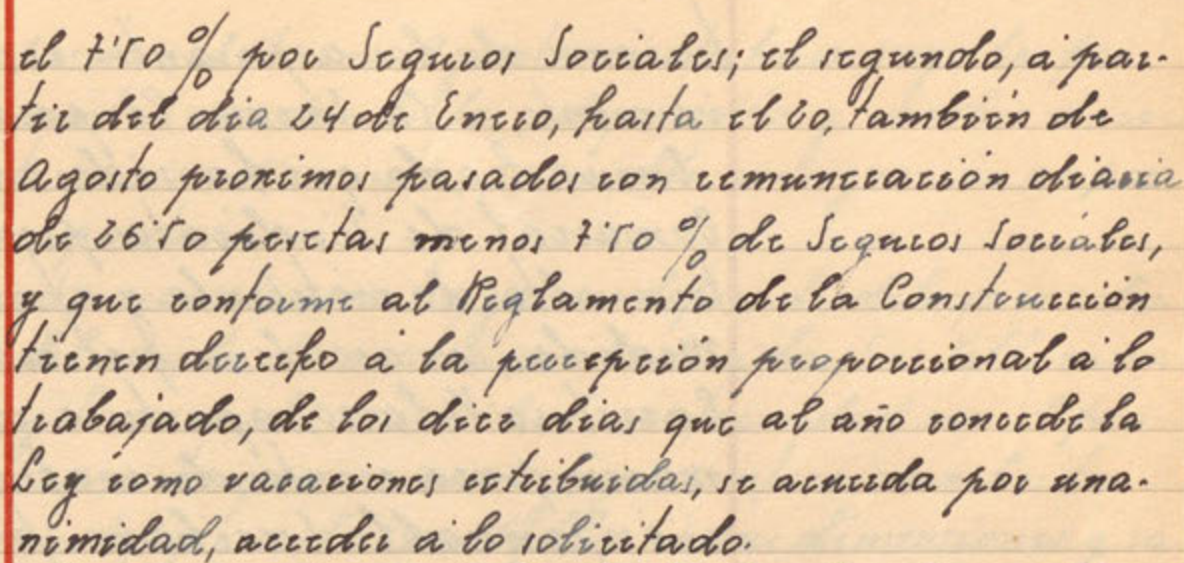 el 7'50 % por Seguros Sociales; el segundo, á par-
tir del dia 24 de Enero, hasta el 20, también de
Agosto proximos pasados con remuneración diaria
de 26'50 pesetas menos 7'50 % de Seguros Sociales,
y que conforme al Reglamento de la Construcción
tienen derecho á la percepción proporcional á lo
trabajado, de los diez dias que al año concede la
Ley como vacaciones retribuidas, se acuerda por una-
nimidad, acceder á lo solicitado.